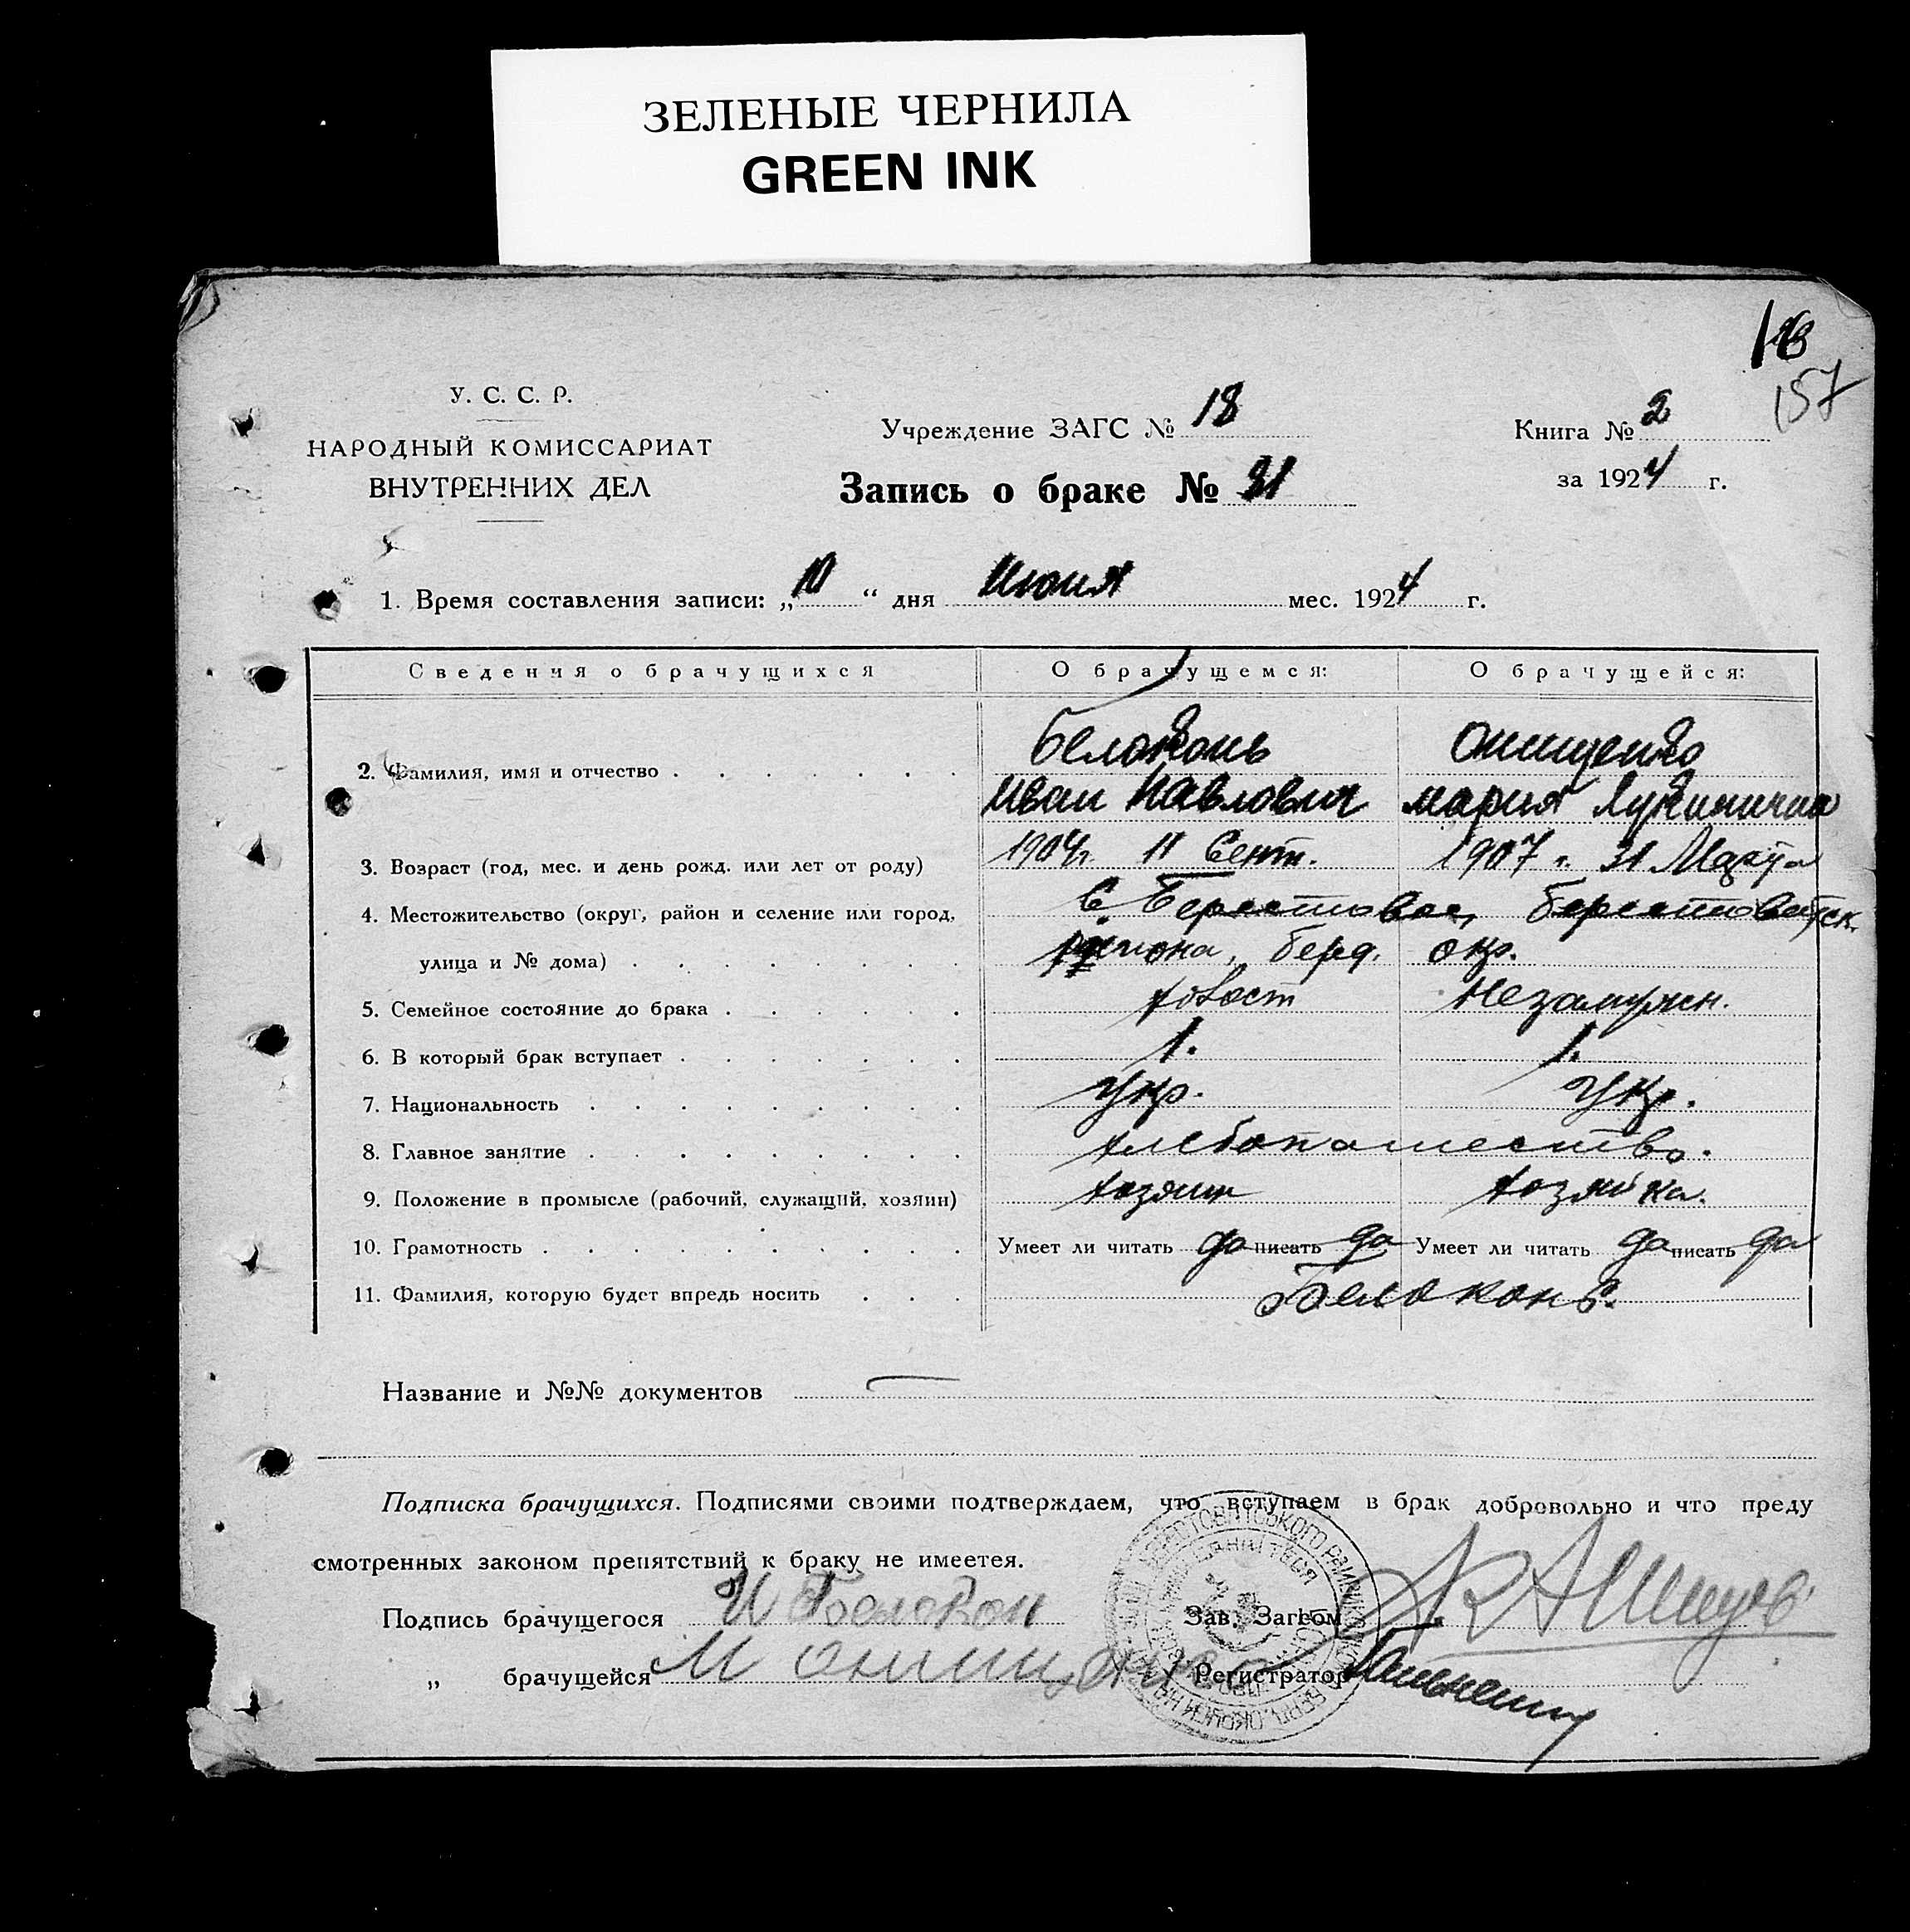 ЗЕЛЕНЫЕ ЧЕРНИЛА
GREEN INK
157
У. С. С. Р.
НАРОДНЫЙ КОМИССАРИАТ
ВНУТРЕННИХ ДЕЛ
Учреждение ЗАГС № 18
Запись о браке № 31
Книга № 2
за 1924 г.
1. Время составления записи: „10“ дня Июня мес. 1924 г.
Сведения о брачущихся О брачущемся: О брачущейся:
Белоконь Онищенко
2. Фамилия, имя и отчество
Иван Павлович Мария Лукинична
3. Возраст (год, мес. и день рожд. или лет от роду) 1904 г. 11 Сент. 1907 г. 31 Марта
4. Местожительство (округ, район и селение или город, С. Берестовое, Берестоватск.
улица и № дома) района, Берд. окр.
5. Семейное состояние до брака холост Незамужн.
6. В который брак вступает 1. 1.
7. Национальность Укр. Укр.
8. Главное занятие хлебопашество.
9. Положение в промысле (рабочий, служащий, хозяин) хозяин хозяйка.
10. Грамотность Умеет ли читать да писать да Умеет ли читать да писать да
11. Фамилия, которую будет впредь носить Белоконь.
Название и №№ документов —
Подписка брачущихся. Подписями своими подтверждаем, что вступаем в брак добровольно и что преду
смотренных законом препятствий к браку не имеетея.
Подпись брачущегося И Белокон Зав. Загсом
„ брачущейся М Онищенко Регистратор